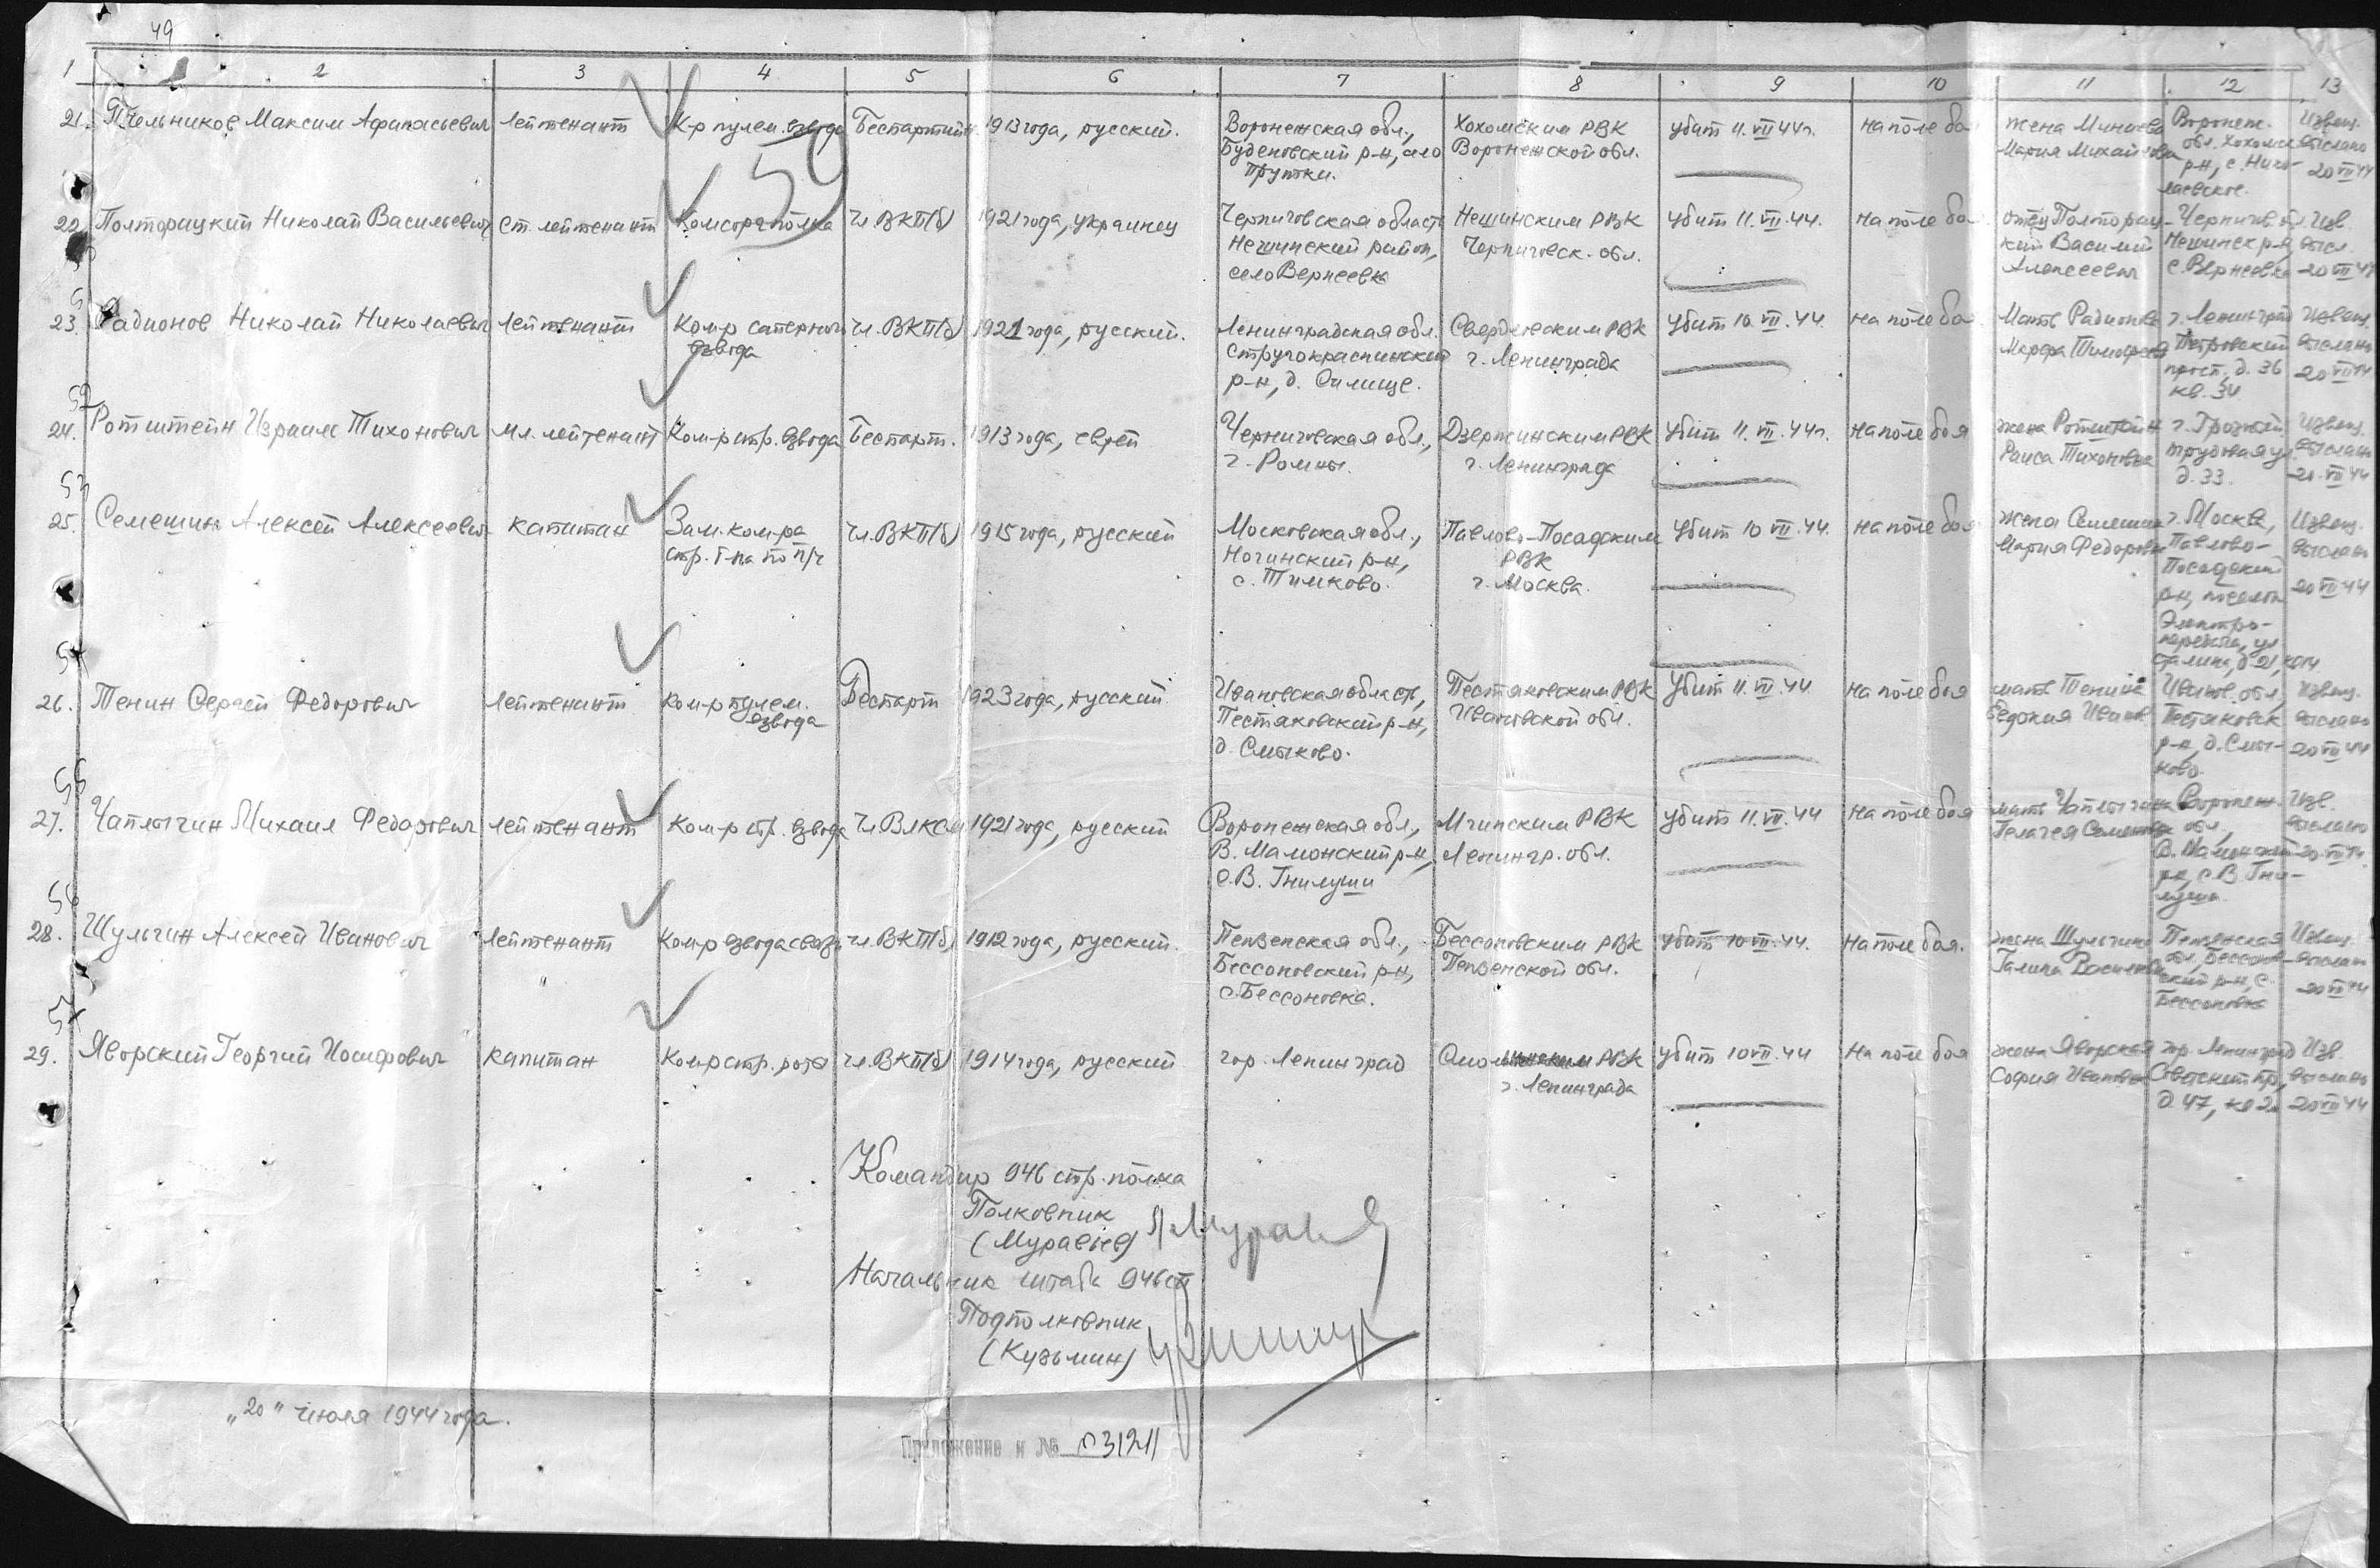 49
1 2 3 4 5 6 7 8 9 10 11 12 13
21. Пчельников Максим Афанасьевич лейтенант К-р пулем. взвода Беспартийн. 1913 года, русский. Воронежская обл., Хохольским РВК убит 11.VII.44г. на поле боя жена Минаева Воронеж. Извещ.
Буденовский р-н, село Воронежской обл. Мария Михайловна обл. Хохольск. выслано
Прутки. р-н, с. Нико- 20 VII 44
лаевское.
59
22. Полторацкий Николай Васильевич ст. лейтенант Комсорг полка чл. ВКП(б) 1921 года, украинец Черниговская область Нежинским РВК убит 11.VII.44. на поле боя отец Полторац- Чернигов. обл. Изв.
Нежинский район, Черниговск. обл. кий Василий Нежинск р-н, высл.
село Вертеевка Алексеевич с. Вертеевка 20 VII 44
23. Радионов Николай Николаевич лейтенант Ком-р саперного чл. ВКП(б) 1921 года, русский. Ленинградская обл. Свердловским РВК убит 10.VII.44. на поле боя Мать Радионова г. Ленинград Извещ.
взвода Стругокраснинский г. Ленинграда Марфа Тимофеев Петровский выслано
р-н, д. Силище. просп., д. 36 20 VII 44
кв. 34
24. Ротштейн Израиль Тихонович мл. лейтенант Ком-р стр. взвода Беспарт. 1913 года, еврей Черниговская обл., Дзержинским РВК убит 11.VII.44г. на поле боя жена Ротштейн г. Грозный Извещ.
г. Ромны. г. Ленинграда Раиса Тихоновна трудовая ул. выслано
д. 33. 20.VII 44
53
25. Семешин Алексей Алексеевич капитан Зам. ком-ра чл. ВКП(б) 1915 года, русский Московская обл., Павлово-Посадским убит 10 VII.44. на поле боя жена Семешина г. Москва, Извещ.
стр. б-на по п/ч Ногинский р-н, РВК Мария Федоровн Павлово- выслано
с. Тимково. г. Москва. Посадский 20 VII 44
р-н, поселок
Электро-
передача, ул
Сталина, д. 21,
54
26. Тенин Сергей Федорович лейтенант Ком-р пулем. Беспарт 1923 года, русский Ивановская область, Пестяковским РВК убит 11.VII.44 на поле боя мать Тенина Иванов. обл, Извещ.
взвода Пестяковский р-н, Ивановской обл. Федокия Иванов Пестяковск выслано
д. Смыково. р-н, д. Смы- 20 VII 44
ково.
55
27. Чаплыгин Михаил Федорович лейтенант Ком-р стр. взвода чл. ВЛКСМ 1921 года, русский Воронежская обл., Мгинским РВК убит 11.VII.44 на поле боя мать Чаплыгина Воронеж. Изв.
В. Мамонский р-н, Ленингр. обл. Пелагея Семеновна обл., выслано
с. В. Гнилуши В. Мамонский 20.VII 44.
р-н, с. В Гни-
луши.
56
28. Шульгин Алексей Иванович лейтенант Ком-р взвода связи чл. ВКП(б) 1912 года, русский. Пензенская обл., Бессоновским РВК убит 10 VII.44. на поле боя. жена Шульгина Пензенская Извещ.
Бессоновский р-н, Пензенской обл. Галина Васильев обл., Бессонов- выслано
с. Бессоновка. ский р-н, с. 20 VII 44
Бессоновка
57
29. Яворский Георгий Иосифович капитан Ком-р стр. роты чл. ВКП(б) 1914 года, русский гор. Ленинград Смольнинским РВК убит 10 VII.44 на поле боя жена Яворская гор. Ленинград Изв.
г. Ленинграда София Ивановна Советский пр, выслано
д. 47, кв 2 20 VII 44
Командир 946 стр. полка
Полковник
(Муравьев)
Начальник штаба 946 сп
Подполковник
(Кузьмин)
„20" июля 1944 года.
Приложение к № 031211